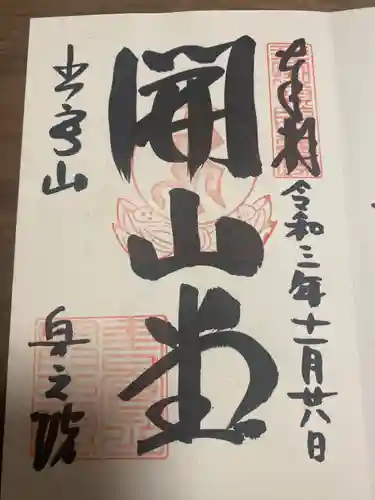 奉拝
令和三年十一月廿八日
開山堂
書寫山
奥之院